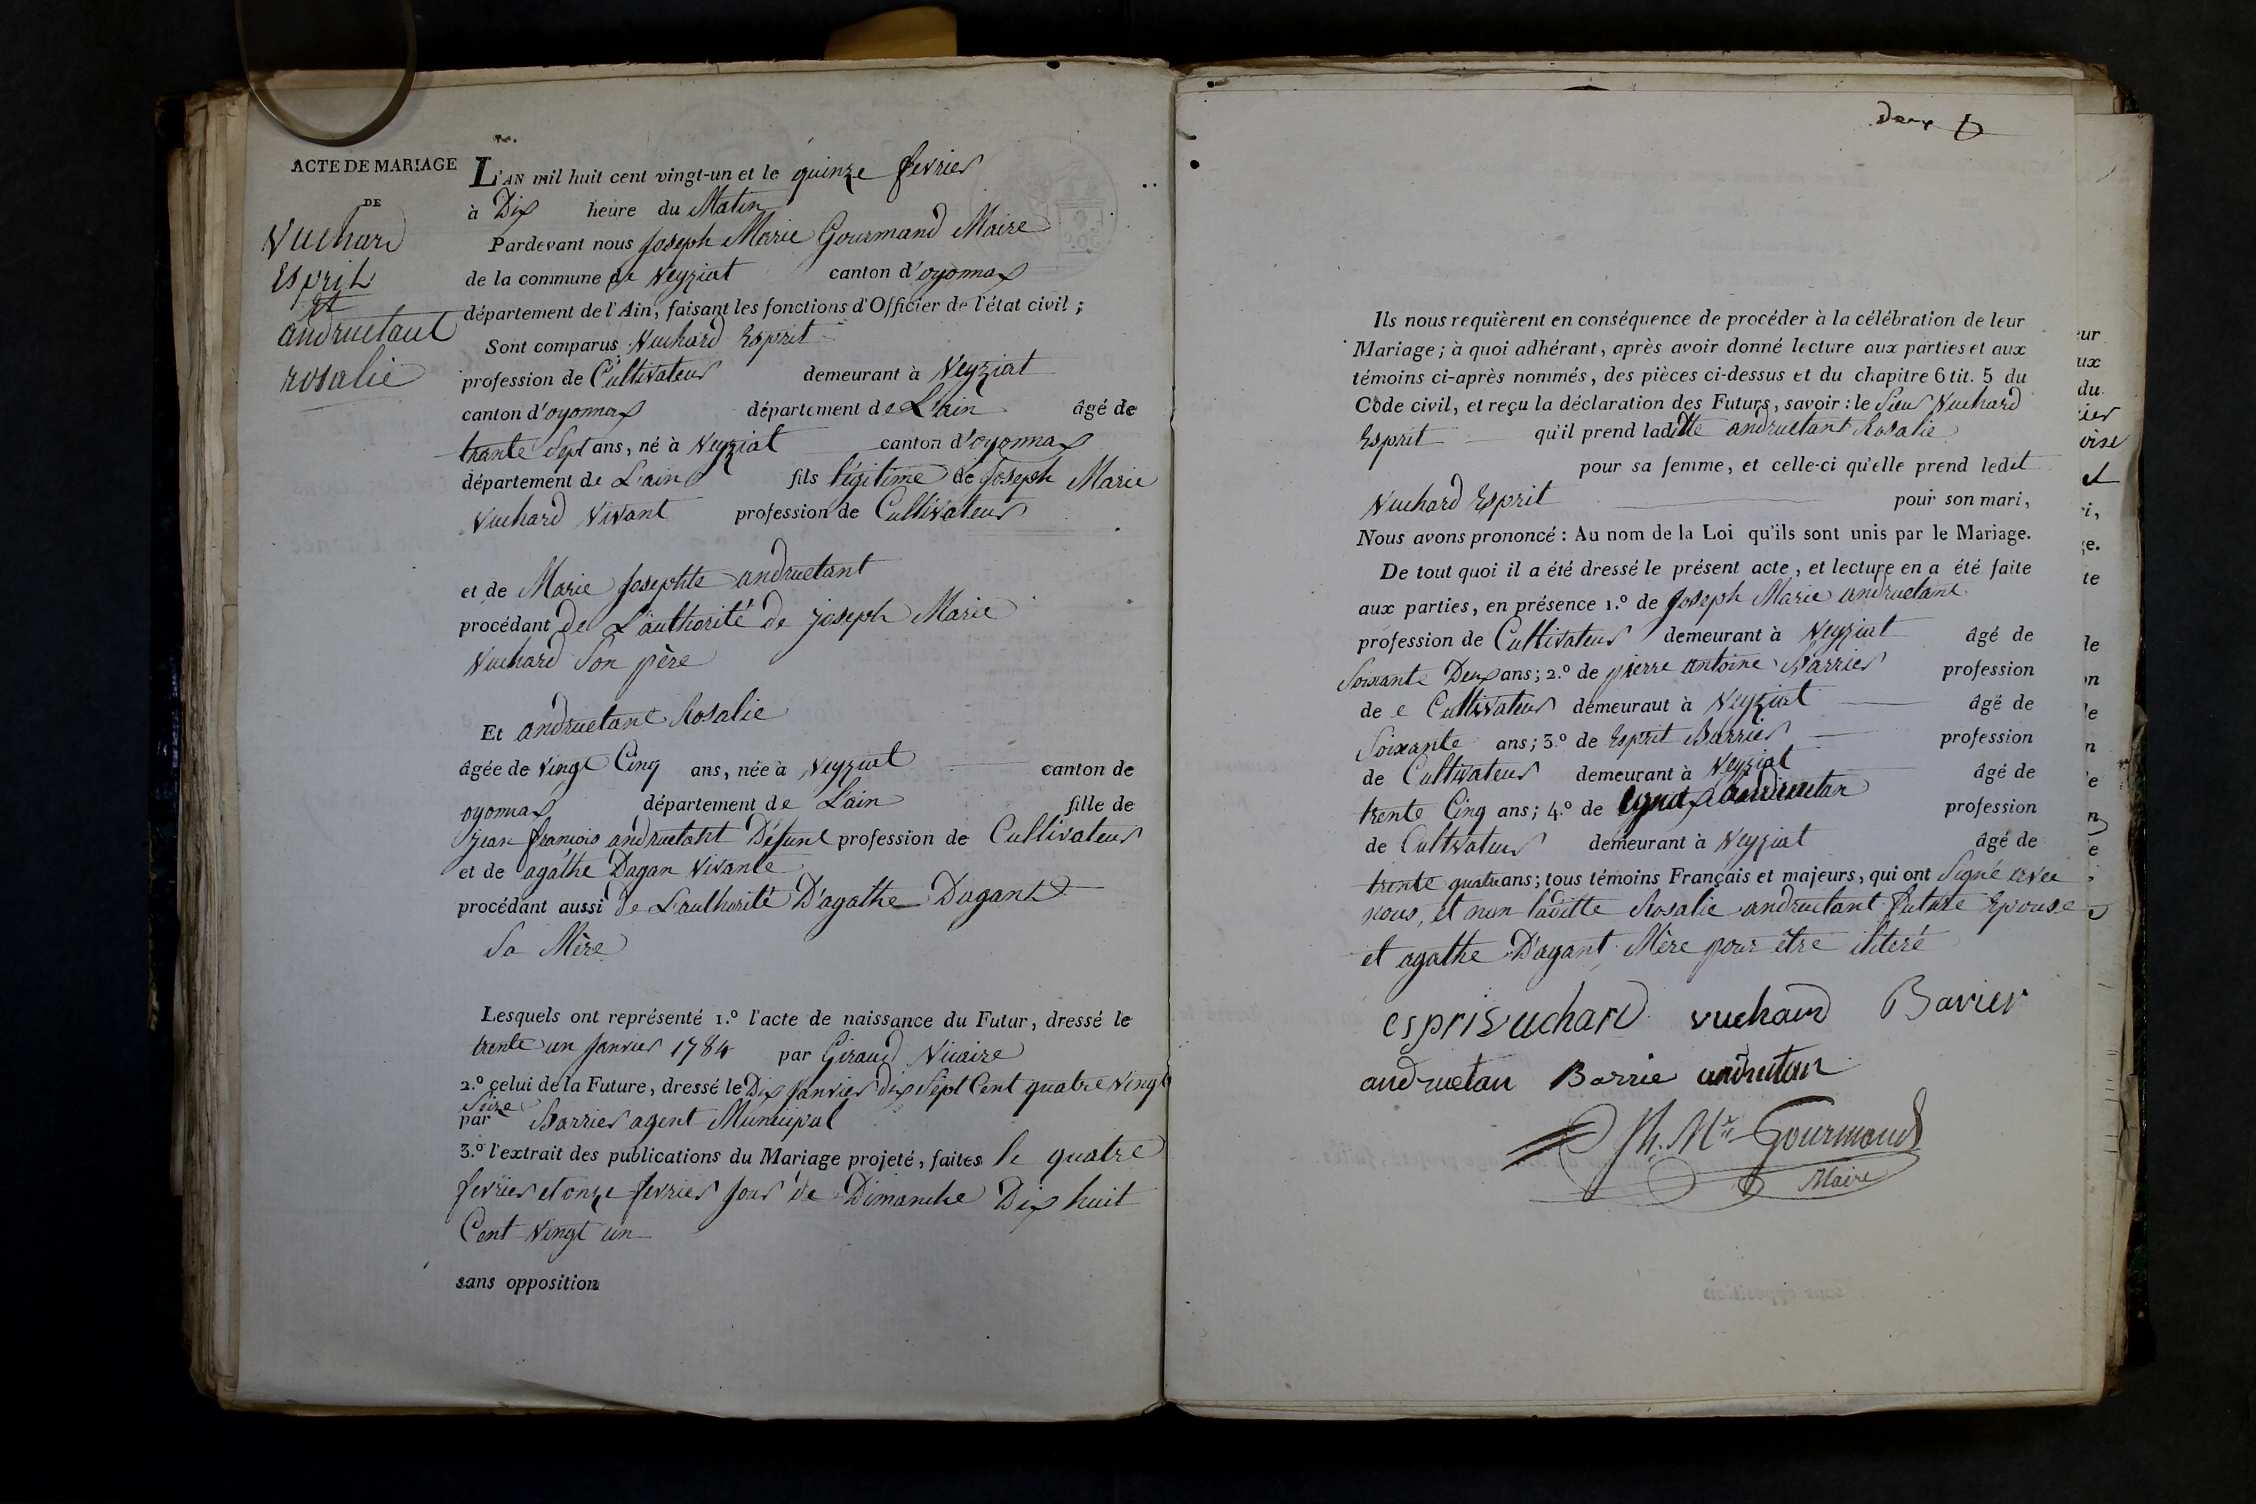 ACTE DE MARIAGE
DE
Vuchard
Esprit
Et
andruetant
rosalie
L'AN mil huit cent vingt-un et le quinze fevrier
à Dix heure du Matin
Pardevant nous Joseph Marie Gourmand Maire
de la commune de Veyziat canton d'oyonnax
département de l'Ain, faisant les fonctions d'Officier de l'état civil ;
Sont comparus Vuchard Esprit
profession de Cultivateur demeurant à Veyziat
canton d'oyonnax département de L'ain âgé de
trante Sept ans, né à Veyziat canton d'oyonnax
département de L'ain fils légitime de Joseph Marie
Vuchard Vivant profession de Cultivateur
et de Marie Josephte andruetant
procédant de L'authorité de joseph Marie
Vuchard Son père
Et andruetant Rosalie
âgée de Vingt Cinq ans, née à Veyziat canton de
oyonnax département de L'ain fille de
jean françois andruetant Défunt profession de Cultivateur
et de agathe Dagan Vivante
procédant aussi de L'authorité D'agathe Dagant
Sa Mère
Lesquels ont représenté 1.º l'acte de naissance du Futur, dressé le
trente un Janvier 1784 par Giraud Vicaire
2.º celui de la Future, dressé le Dix Janvier dix Sept Cent quatre Vingt
Seize
par Barrier agent Municipal
3.º l'extrait des publications du Mariage projeté, faites le quatre
fevrier et onze fevrier Jour de Dimanche Dix huit
Cent Vingt un
sans opposition
deux
Ils nous requièrent en conséquence de procéder à la célébration de leur
Mariage ; à quoi adhérant, après avoir donné lecture aux parties et aux
témoins ci-après nommés, des pièces ci-dessus et du chapitre 6 tit. 5 du
Code civil, et reçu la déclaration des Futurs, savoir : le Sieur Vuchard
Esprit qu'il prend laditte andruetant Rosalie
pour sa femme, et celle-ci qu'elle prend ledit
Vuchard Esprit pour son mari,
Nous avons prononcé : Au nom de la Loi qu'ils sont unis par le Mariage.
De tout quoi il a été dressé le présent acte, et lecture en a été faite
aux parties, en présence 1.º de Joseph Marie andruetant
profession de Cultivateur demeurant à Veyziat âgé de
Soixante Deux ans ; 2.º de pierre antoine Barrier profession
de e Cultivateur demeuraut à Veyziat âgé de
Soixante ans ; 3.º de Esprit Barrier profession
de Cultivateur demeurant à Veyziat âgé de
trente Cinq ans ; 4.º de andruetan profession
de Cultivateur demeurant à Veyziat âgé de
trente quatre ans ; tous témoins Français et majeurs, qui ont Signé avec
nous, et non laditte Rosalie andruetant future Epouse
et agathe D'agant Mère pour être iliteré
esprisuchard vuchard Bavier
andruetan Barrie andruetan
Jh. Mie Gourmand
Maire